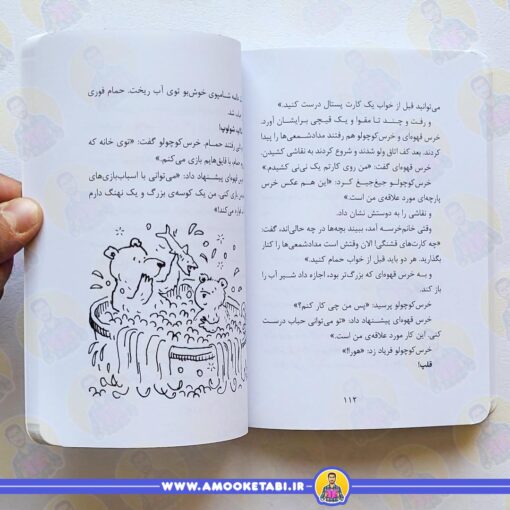 می‌توانید قبل از خواب یک کارت پستال درست کنید.»
و رفت و چند تا مقوا و یک قیچی برایشان آورد.
خرس قهوه‌ای و خرس‌کوچولو هم رفتند مدادشمعی‌ها را پیدا
کردند. بعد کف اتاق ولو شدند و شروع کردند به نقاشی کشیدن.
خرس قهوه‌ای گفت: «من روی کارتم یک نی‌نی کشیدم.»
خرس‌کوچولو جیغ‌جیغ کرد: «این هم عکس خرس
پارچه‌ای مورد علاقه‌ی من است.»
و نقاشی را به دوستش نشان داد.
وقتی خانم‌خرسه آمد، ببیند بچه‌ها در چه حالی‌اند، گفت:
«چه کارت‌های قشنگی! الان وقتش است مدادشمعی‌ها را کنار
بگذارید. هر دو باید قبل از خواب حمام کنید.»
و به خرس قهوه‌ای که بزرگ‌تر بود، اجازه داد شیر آب را
باز کند.
خرس‌کوچولو پرسید: «پس من چی کار کنم؟»
خرس قهوه‌ای پیشنهاد داد: «تو می‌توانی حباب درست
کنی. این کار مورد علاقه‌ی من است.»
خرس‌کوچولو فریاد زد: «هورا!»
قلپ!
۱۱۲
شامپوی خوش‌بو توی آب ریخت. حمام فوری
شد.
شولوپ!
رفتند حمام، خرس‌کوچولو گفت: «توی خانه که
حمام با قایق‌هایم بازی می‌کنم.»
قهوه‌ای پیشنهاد داد: «می‌توانی با اسباب‌بازی‌های
من بازی کنی. من یک کوسه‌ی بزرگ و یک نهنگ دارم
می‌کند!»
WWW.AMOOKETABI.IR